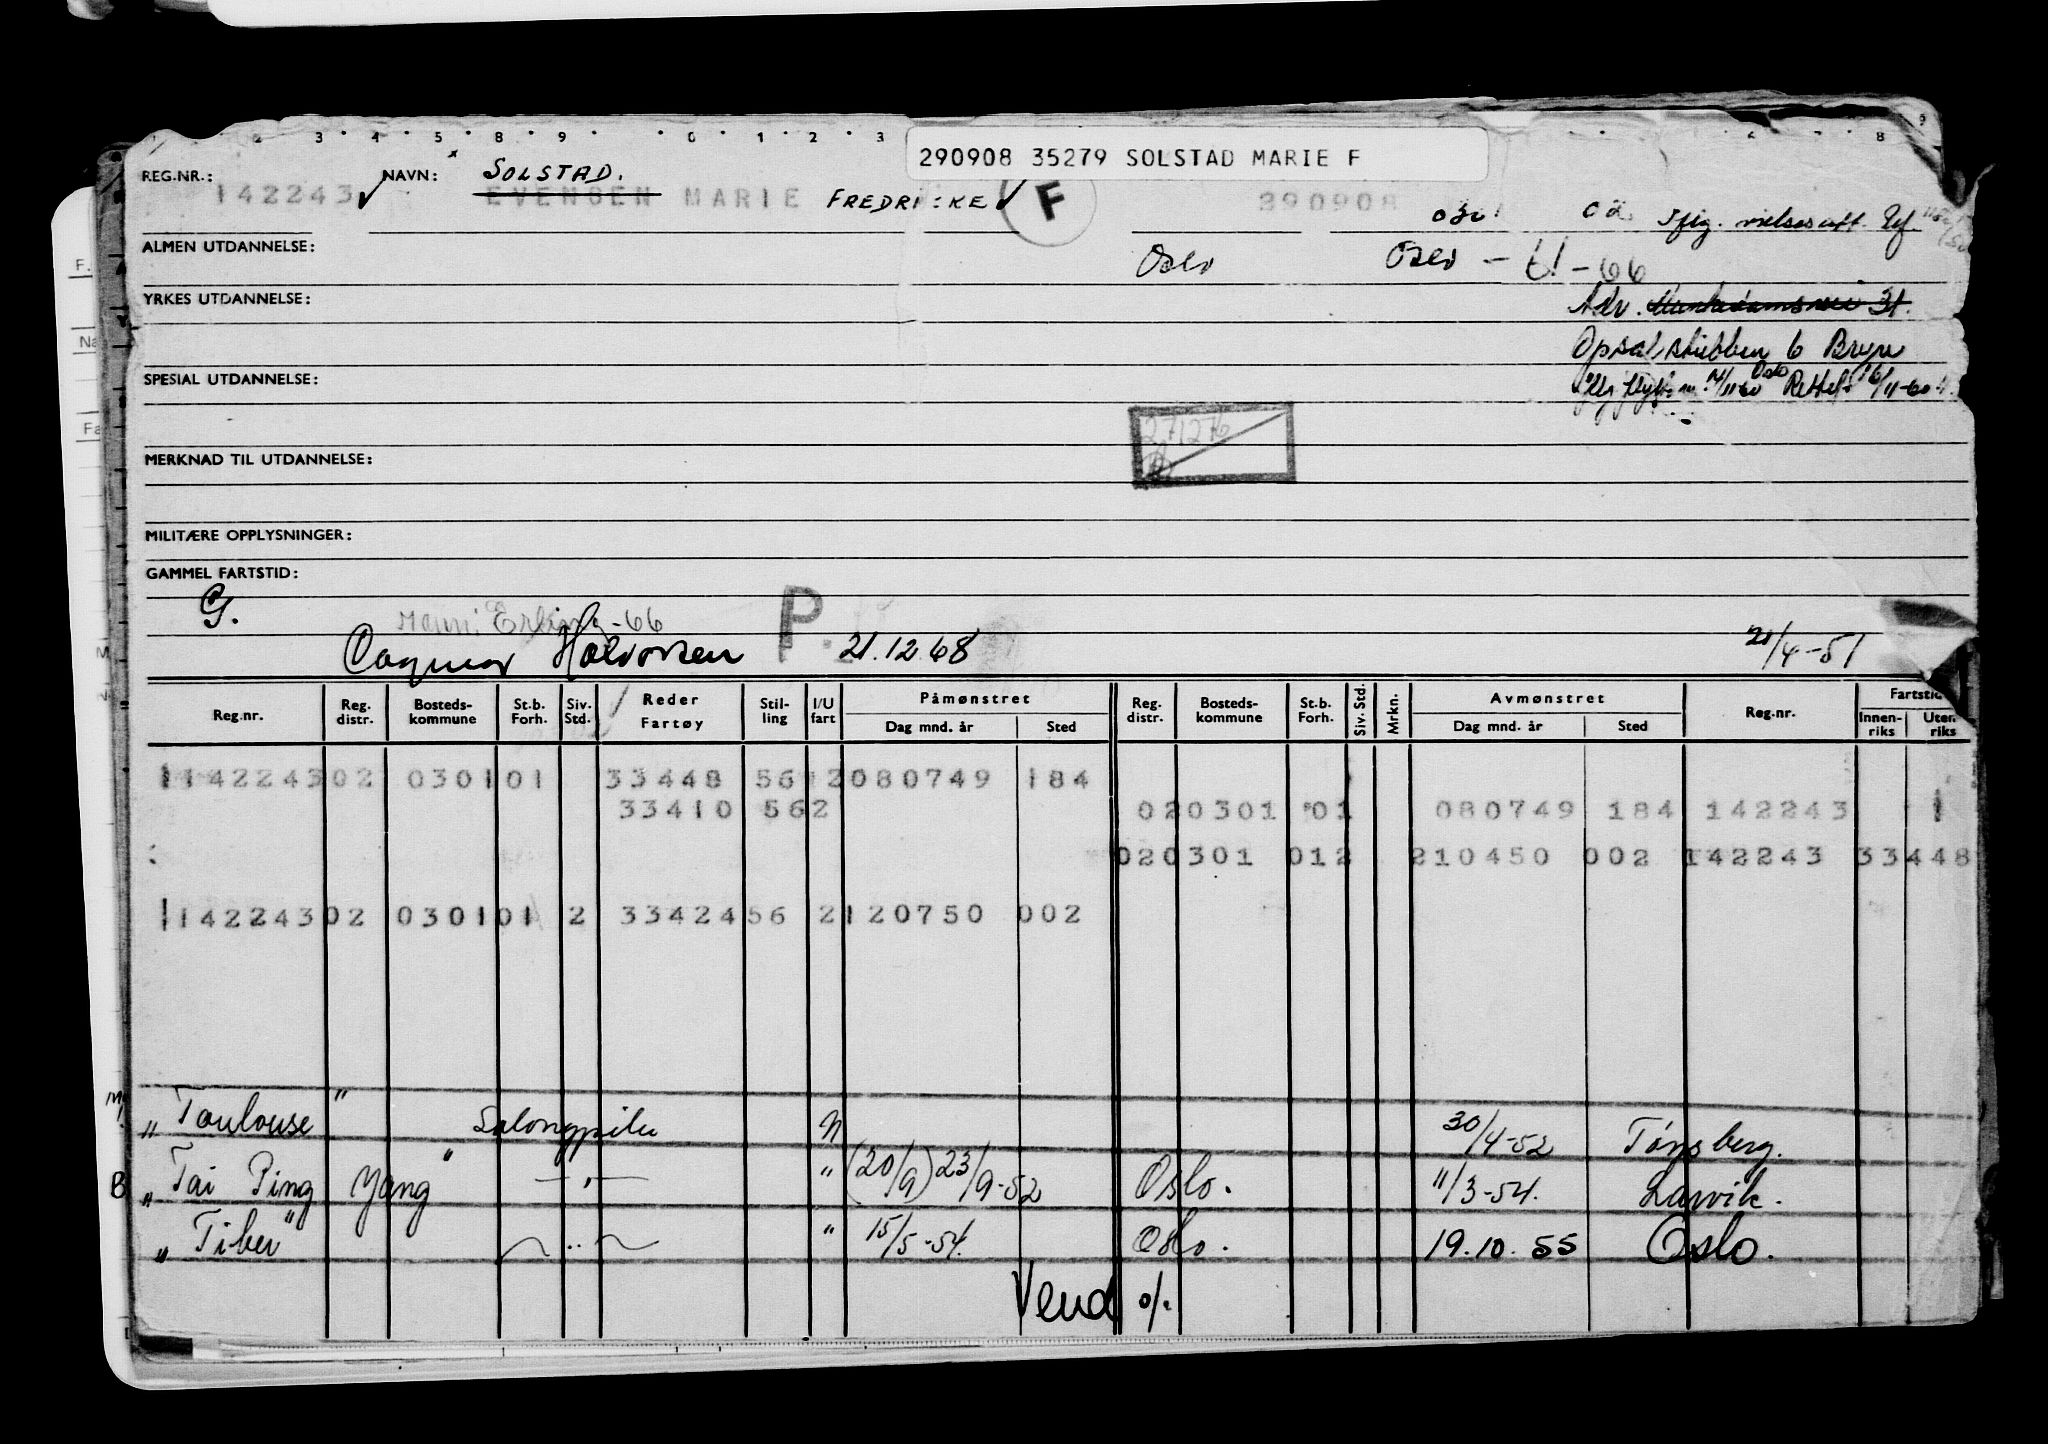 290908 35279 SOLSTAD MARIE F
REG.NR.: 142243 NAVN: SOLSTAD.
EVENSEN MARIE FREDRICKE F 290908
ALMEN UTDANNELSE: Oslo Oslo - 61 - 66
YRKES UTDANNELSE: 31.
Opsalstubben 6 Bryn
SPESIAL UTDANNELSE: Oslo
271276
MERKNAD TIL UTDANNELSE:
MILITÆRE OPPLYSNINGER:
GAMMEL FARTSTID:
G. Erling -66 P.
Dagmar Halvorsen 21.12.68 21/4-51
Reg.nr. Reg. distr. Bosteds-kommune St.b. Forh. Siv. Std. Reder Fartøy Stil-ling I/U fart Påmønstret Dag mnd. år Sted Reg. distr. Bosteds-kommune St.b. Forh. Siv. Std. Mrkn. Avmønstret Dag mnd. år Sted Reg.nr. Fartstid Innen-riks Uten riks
114224302 030101 33448 5612080749 184
33410 562 020301 01 080749 184 142243 1
020301 012 210450 002 142243 33448
114224302 030101 2 3342456 2120750 002
"Toulouse" Salongpike N 30/4-52 Tønsberg.
B "Tai Ping Yang" -"- " (20/9) 23/9-52 Oslo. 11/3-54. Larvik.
"Tiber" -"- " 15/5-54. Oslo. 19.10.55 Oslo.
Vend o/.